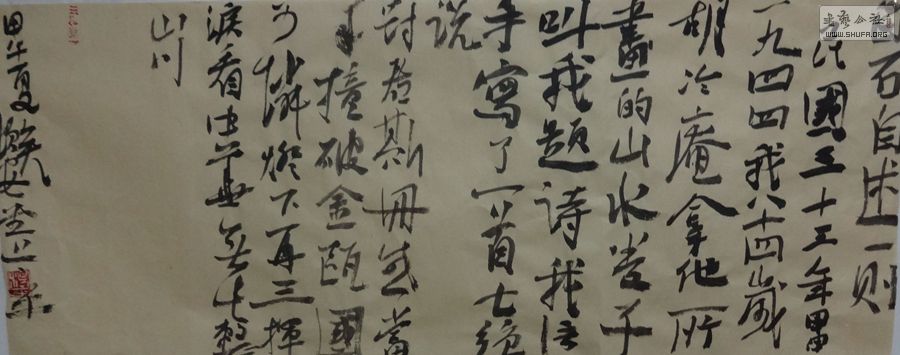 石自述一则
民国三十三年甲
一九四四我八十四岁
胡冷庵拿他所
画的山水卷子
叫我题诗我信
手写了一首七绝
说
对君斯册感当
撞破金瓯国
可怜灯下再三挥
泪看中华无此整
山川
甲午夏
书艺公社
WWW.SHUFA.ORG